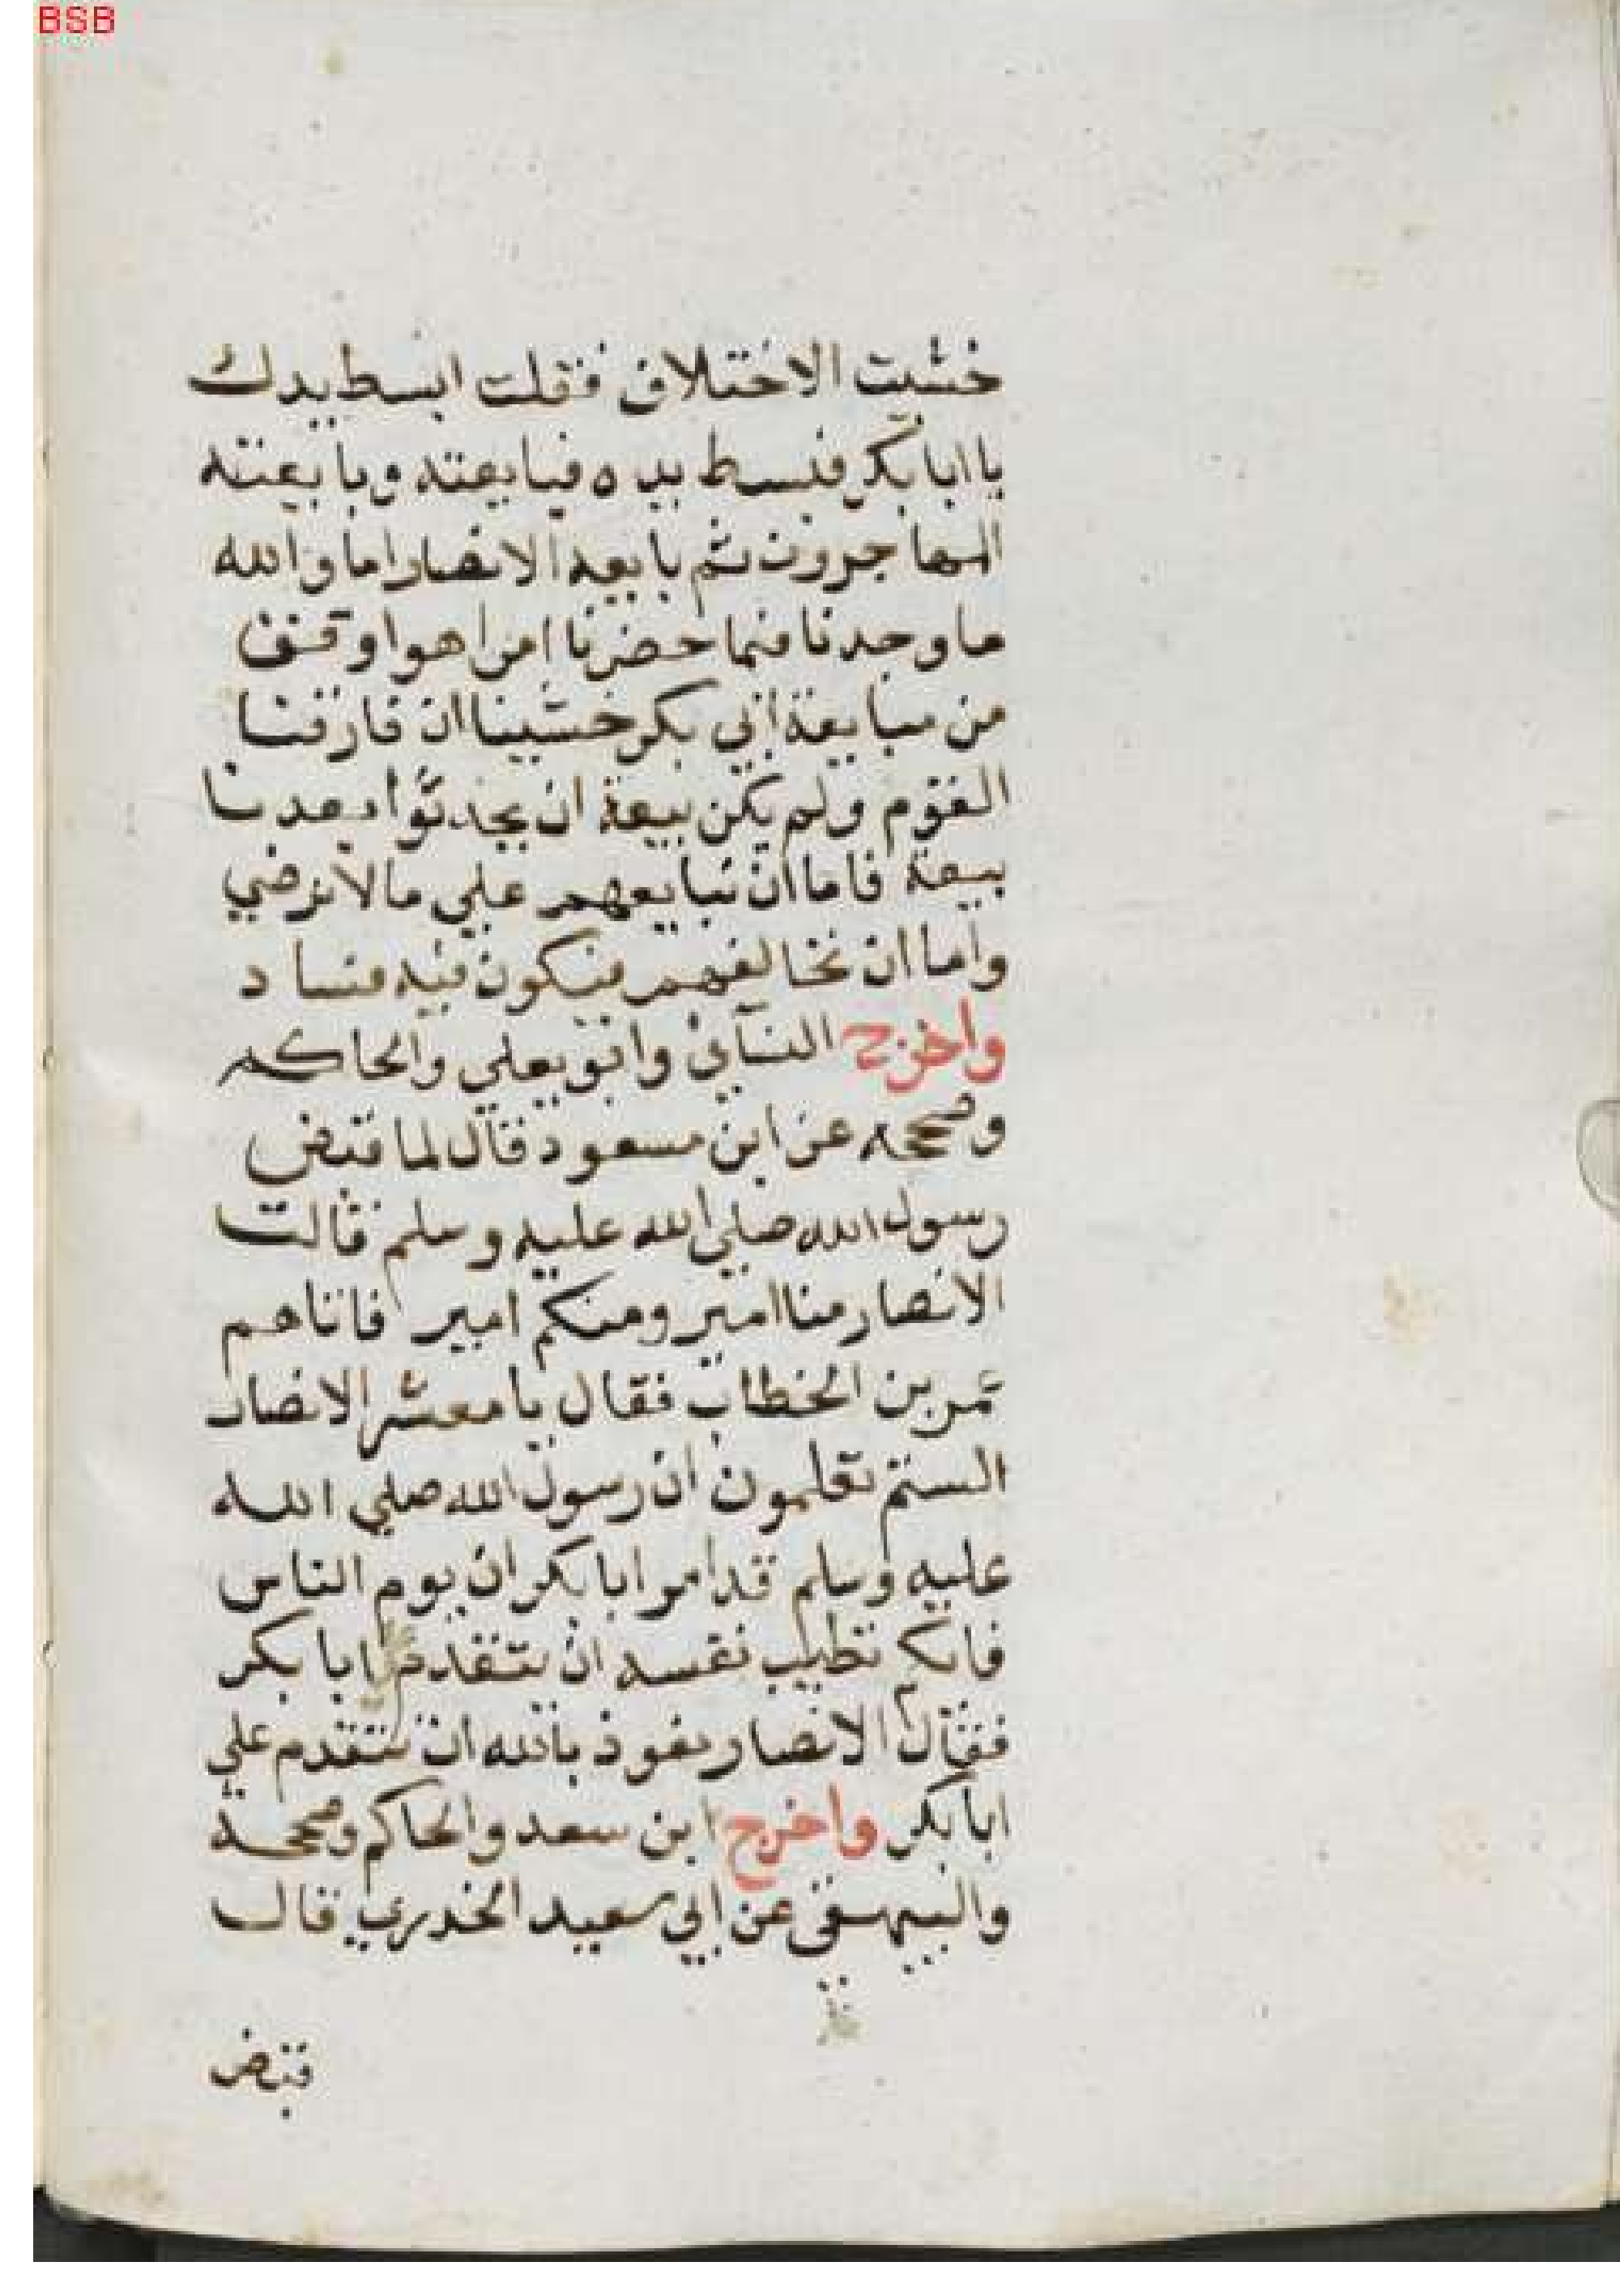 BSB
خشيت الاختلاف فقلت ابسط يدك
يا ابا بكر فبسط يده فبايعته وبايعته
المهاجرون ثم بايعه الانصار اما والله
ما وجدنا فيما حضرنا امرا هوا وقف
من مبايعة ابي بكر خشينا ان فارقنا
القوم ولم يكن بيعة ان يحدثوا بعدنا
بيعة فاما ان نبايعهم علي ما لا نرضي
واما ان نخالفهم فيكون فيه فساد
واخرج النسائي وابو يعلي والحاكم
وصححه عن ابن مسعود قال لما قبض
رسول الله صلي الله عليه وسلم قالت
الانصار منا امير ومنكم امير فاتاهم
عمر بن الخطاب فقال يا معشر الانصار
الستم تعلمون ان رسول الله صلي الله
عليه وسلم قد امر ابا بكر ان يوم الناس
فايكم تطيب نفسه ان يتقدم ابا بكر
فقال الانصار نعوذ بالله ان نتقدم علي
ابا بكر واخرج ابن سعد والحاكم وصححه
والبيهقي عن ابي سعيد الخدري قال
قبض